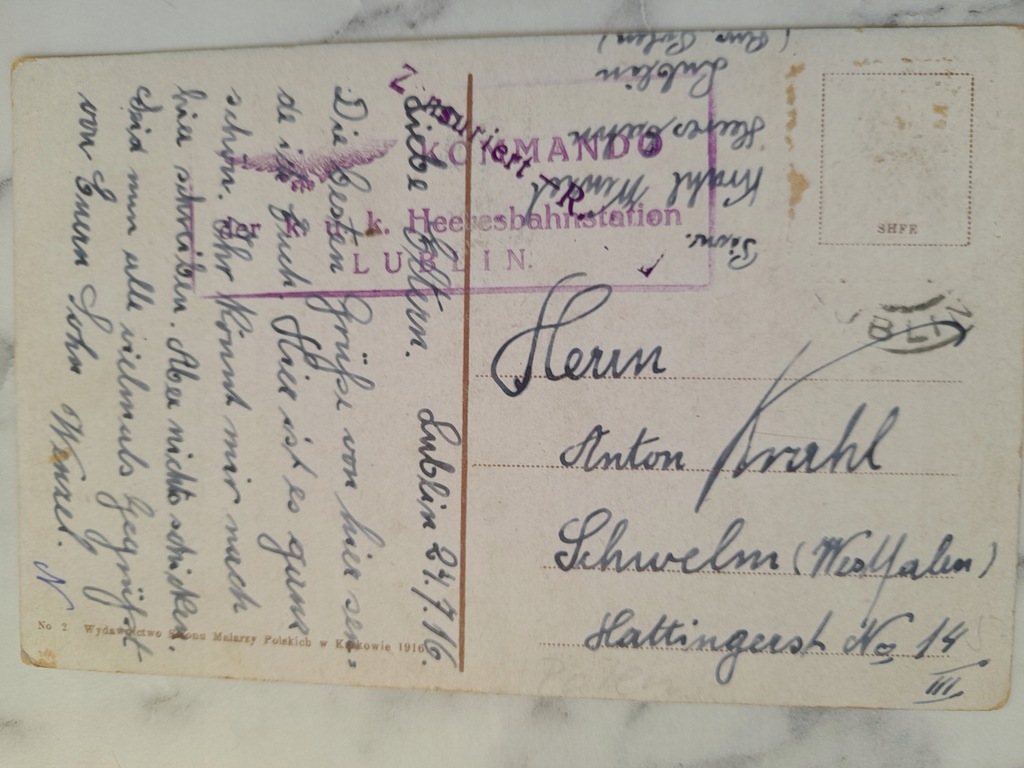 Lublin 24.7.16.
Liebe Eltern.
Die besten Grüße von hier sen-
de ich Euch. Hier ist es ganz
schön. Ihr könnt mir nach
hier schreiben. Aber nichts schicken.
Seid nun alle vielmals gegrüßt
von Euern Sohn Wenzel.
N
No 2 Wydawnictwo Salonu Malarzy Polskich w Krakowie 1916
Zensuriert
KOMMANDO
der k. u. k. Heeresbahnstation
LUBLIN.
Krahl Wenzel
Heeresbahn
Lublin
(Russ. Polen)
SHFE
BLIN
Herrn
Anton Krahl
Schwelm (Westfalen)
Hattingerst No 14
III